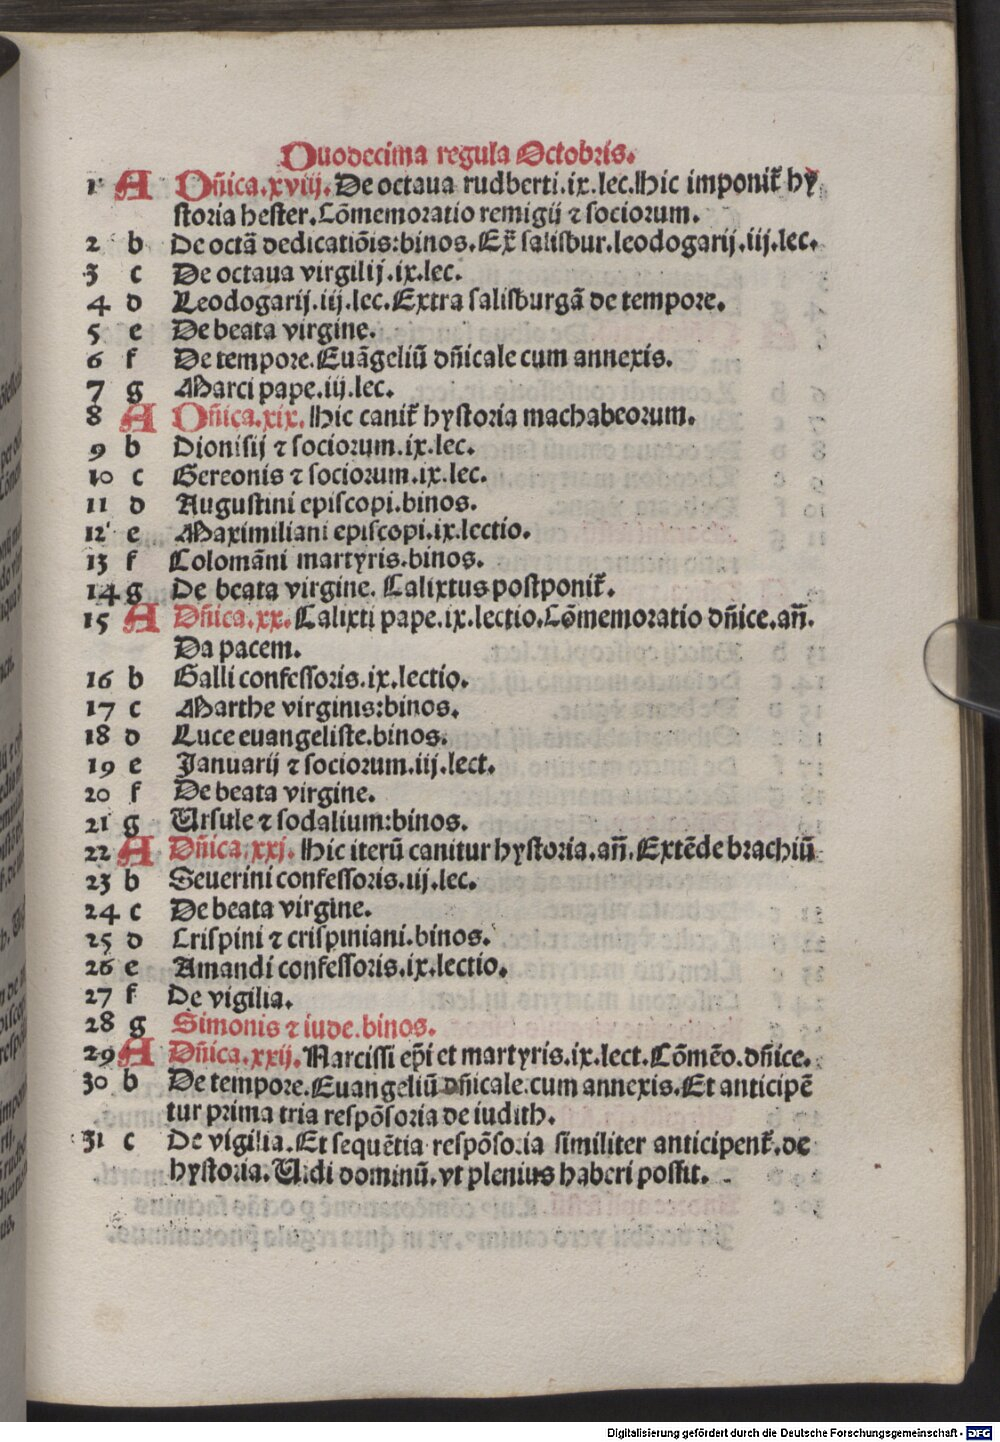 Duodecima regula Octobris.
1 A Dn̄ica.xviij. De octaua rudberti.ix.lec. Hic imponit᷑ hy
storia hester. Cōmemoratio remigij ⁊ sociorum.
2 b De octā dedicatiōis: binos. Ex̄ salisbur. leodogarij.iij.lec.
3 c De octaua virgilij.ix.lec.
4 d Leodogarij.iij.lec. Extra salisburgā de tempore.
5 e De beata virgine.
6 f De tempore. Euāgeliū dn̄icale cum annexis.
7 g Marci pape.iij.lec.
8 A Dn̄ica.xix. Hic canit᷑ hystoria machabeorum.
9 b Dionisij ⁊ sociorum.ix.lec.
10 c Gereonis ⁊ sociorum.ix.lec.
11 d Augustini episcopi.binos.
12 e Maximiliani episcopi.ix.lectio.
13 f Colomāni martyris.binos.
14 g De beata virgine. Calixtus postponit᷑.
15 A Dn̄ica.xx. Calixti pape.ix.lectio. Cōmemoratio dn̄ice.an̄.
Da pacem.
16 b Galli confessoris.ix.lectio.
17 c Marthe virginis: binos.
18 d Luce euangeliste.binos.
19 e Januarij ⁊ sociorum.iij.lect.
20 f De beata virgine.
21 g Ursule ⁊ sodalium: binos.
22 A Dn̄ica.xxj. Hic iterū canitur hystoria.an̄. Extēde brachiū
23 b Seuerini confessoris.iij.lec.
24 c De beata virgine.
25 d Crispini ⁊ crispiniani.binos.
26 e Amandi confessoris.ix.lectio.
27 f De vigilia.
28 g Simonis ⁊ iude.binos.
29 A Dn̄ica.xxij. Narcissi ep̄i et martyris.ix.lect. Cōmēo.dn̄ice.
30 b De tempore. Euangeliū dn̄icale.cum annexis. Et anticipē
tur prima tria respōsoria de iudith.
31 c De vigilia. Et sequētia respōsoria similiter anticipent᷑.de
hystoria. Uidi dominū.vt plenius haberi possit.
Digitalisierung gefördert durch die Deutsche Forschungsgemeinschaft - DFG